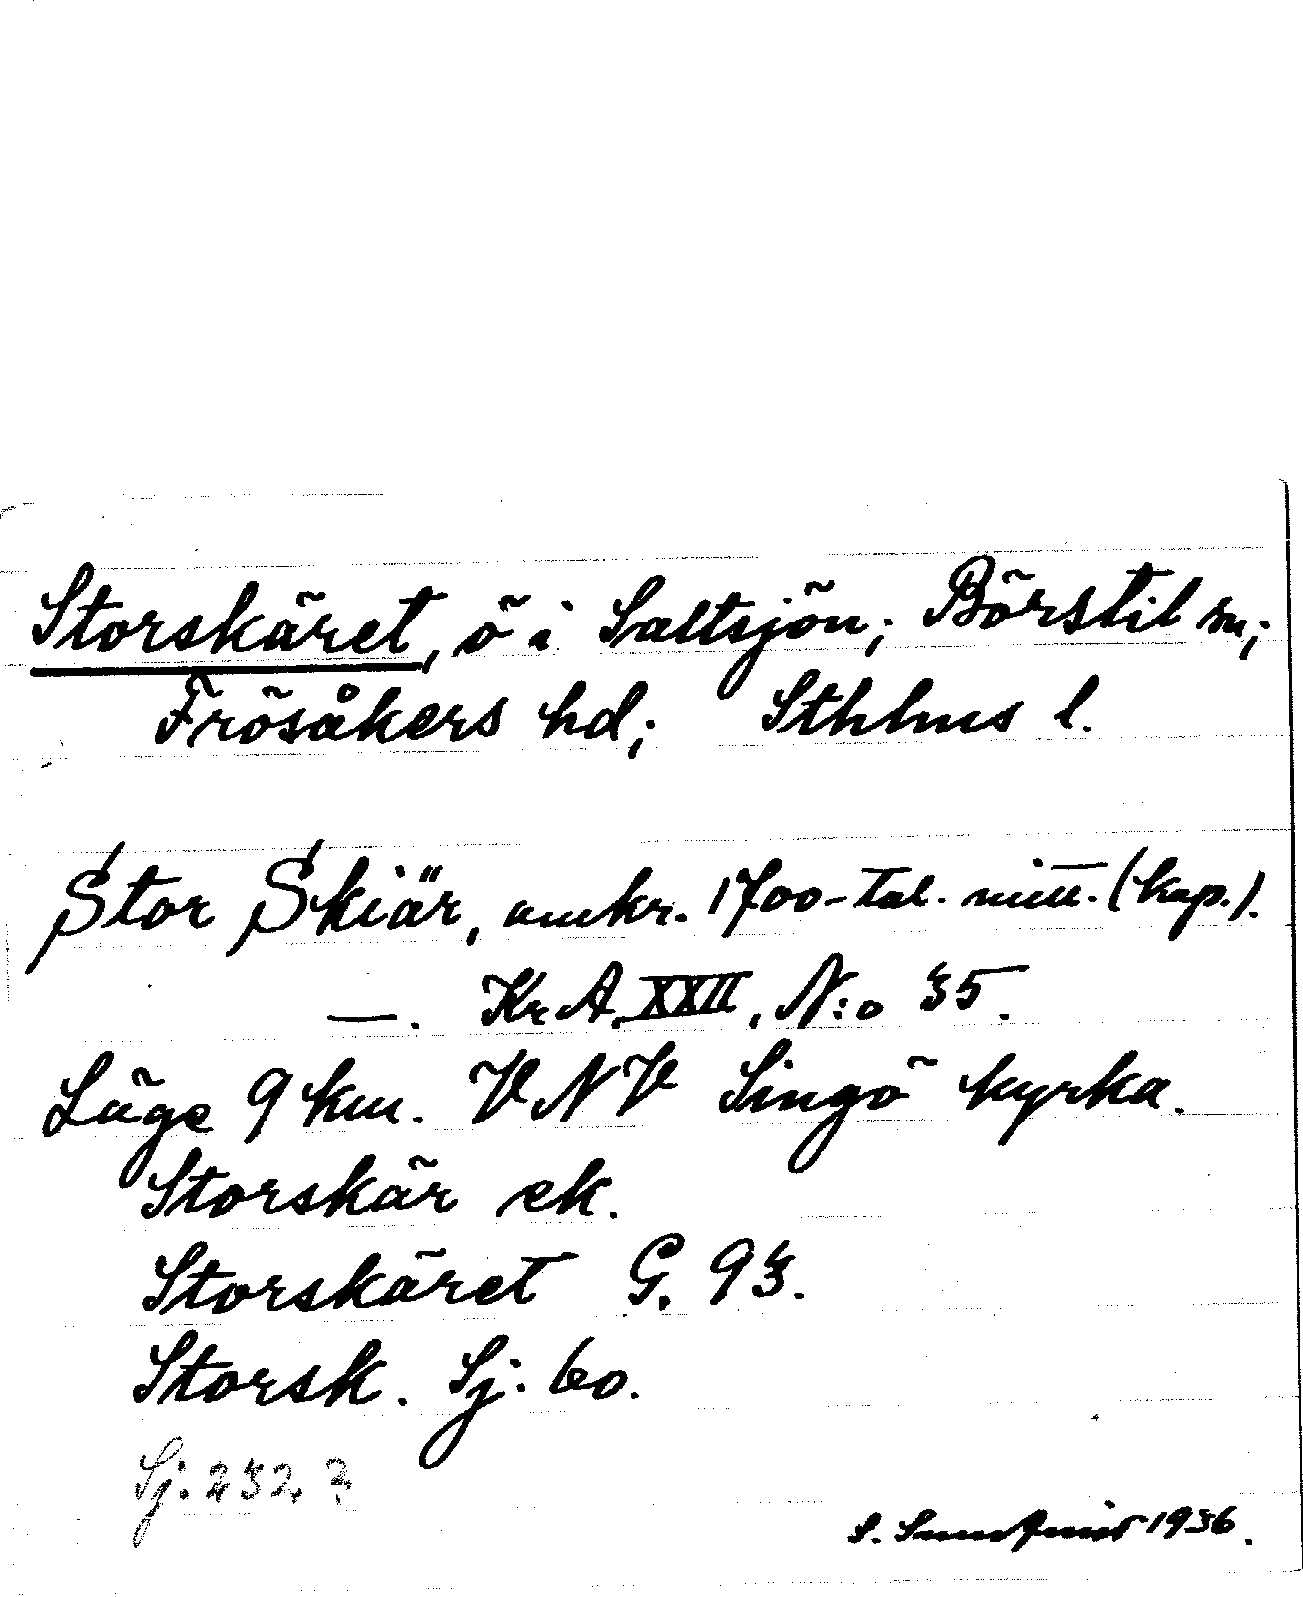 Storskäret, ö i Saltsjön; Börstil sn;
Frösåkers hd; Sthlms l.
Stor Skiär, omkr. 1700-tal. mitt. (kop.).
—. KrA, XXII, N:o 35.
Läge 9 km. VNV Singö kyrka.
Storskär ek.
Storskäret G. 93.
Storsk. Sj. 60.
Sj. 232 ?
S. Sundqvist 1936.